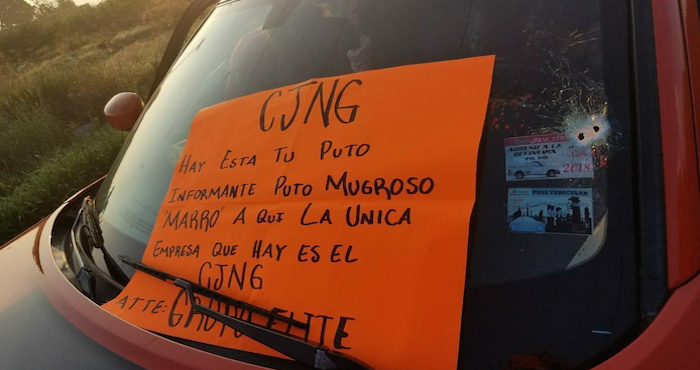 CJNG
HAY ESTA TU PUTO
INFORMANTE PUTO MUGROSO
'MARRO' A QUI LA UNICA
EMPRESA QUE HAY ES EL
CJNG
ATTE: GRUPO ELITE
ACCESO A LA
2018
PASE VEHICULAR